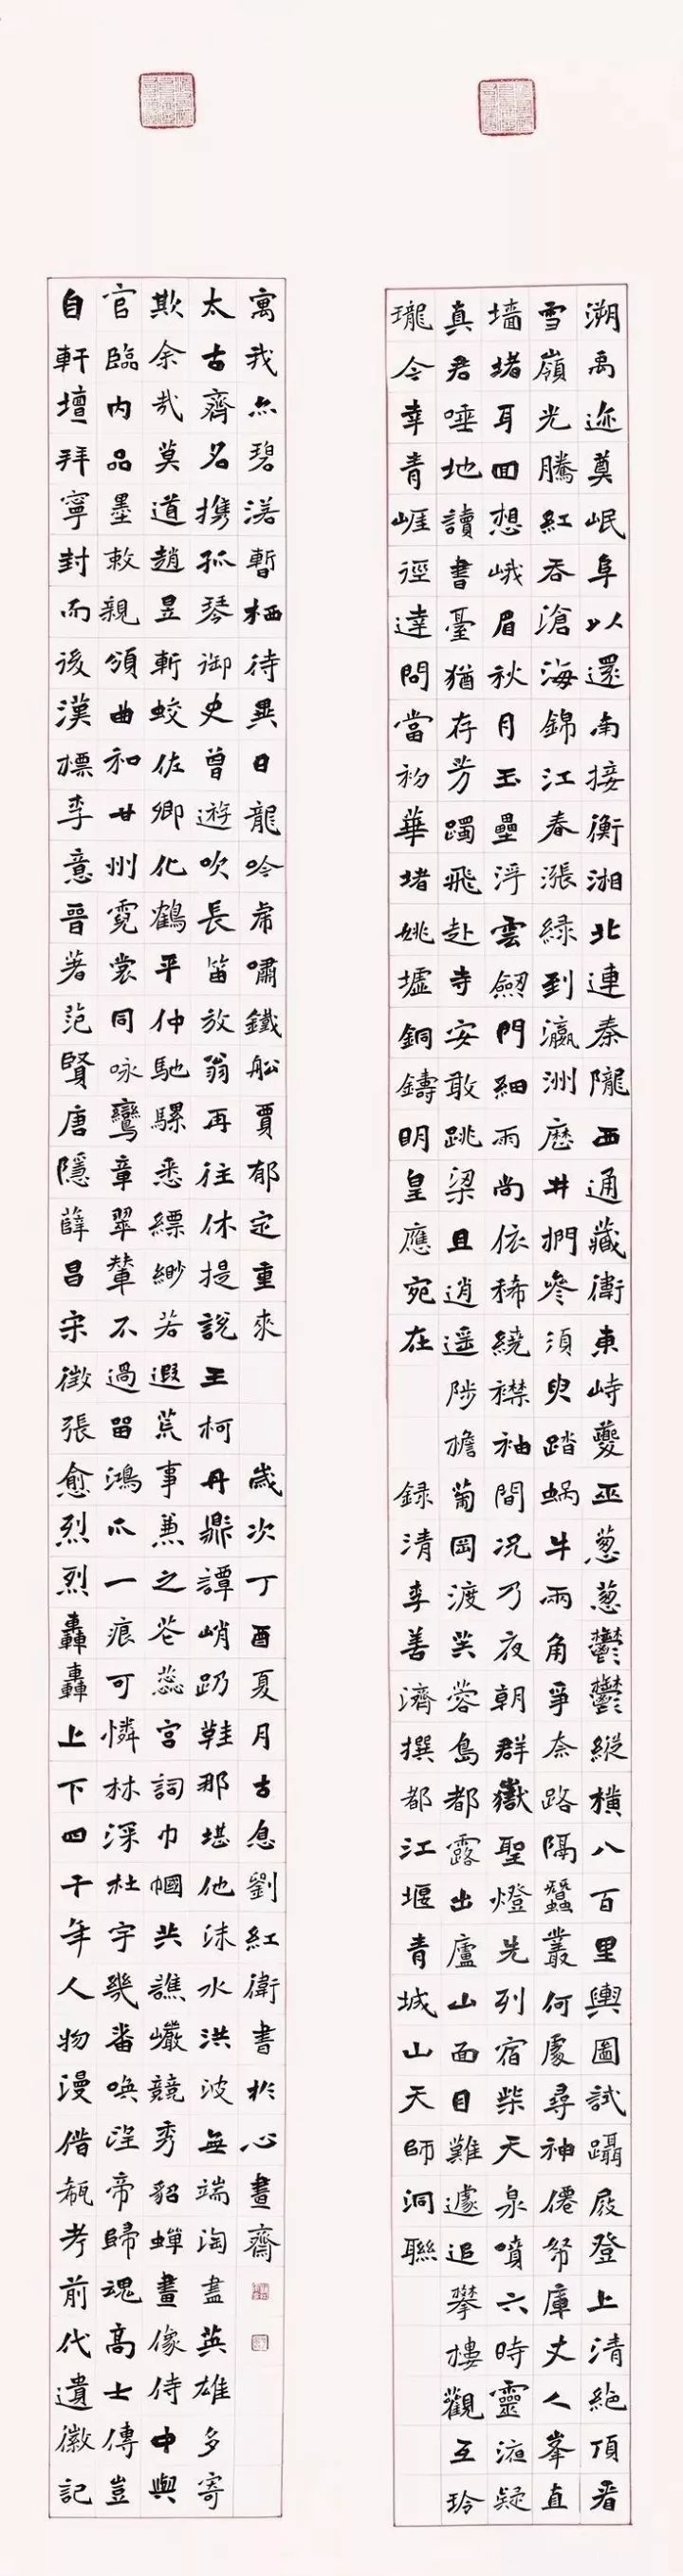 溯禹迹奠岷阜以還南接衡湘北連秦隴西通藏衛東峙夔巫葱葱鬱鬱縱橫八百里輿圖試躡屐登上清絕頂看
雪嶺光騰紅吞滄海錦江春漲綠到瀛洲歷井捫參須臾踏蝸牛兩角爭奈路隔蠶叢何處尋神僊帑庫丈人峯直
墻堵耳回想峨眉秋月玉壘浮雲劒門細雨尚依稀繞襟袖間況乃夜朝群嶽聖燈先列宿柴天泉噴六時靈液疑
真君唾地讀書臺猶存芳躅飛赴寺安敢跳梁且逍遥陟檐蔔岡渡芙蓉島都露出廬山面目難遽追攀樓觀互玲
瓏今幸青崕徑達問當初華堵姚墟銅鑄明皇應宛在
録清李善濟撰都江堰青城山天師洞聯
自軒壇拜寧封而後漢標李意晋著范賢唐隱薛昌宋徵張愈烈烈轟轟上下四千年人物漫借瓻考前代遺徽記
官臨內品墨敕親頒曲和甘州霓裳同咏鸞章翠輦不過留鴻爪一痕可憐林深杜宇幾番喚望帝歸魂高士傳豈
欺余哉莫道趙昱斬蛟佐卿化鶴平仲馳騾悉縹緲若遐荒事兼之花蕊宮詞巾幗共譙巖競秀貂蟬畫像侍中與
太古齊名携孤琴御史曾遊吹長笛放翁再往休提說王柯丹鼎譚峭趿鞋那堪他沫水洪波無端淘盡英雄多寄
寓我亦碧落暫栖待異日龍吟虎嘯鐵船賈郁定重來
歲次丁酉夏月古息劉紅衛書於心畫齋